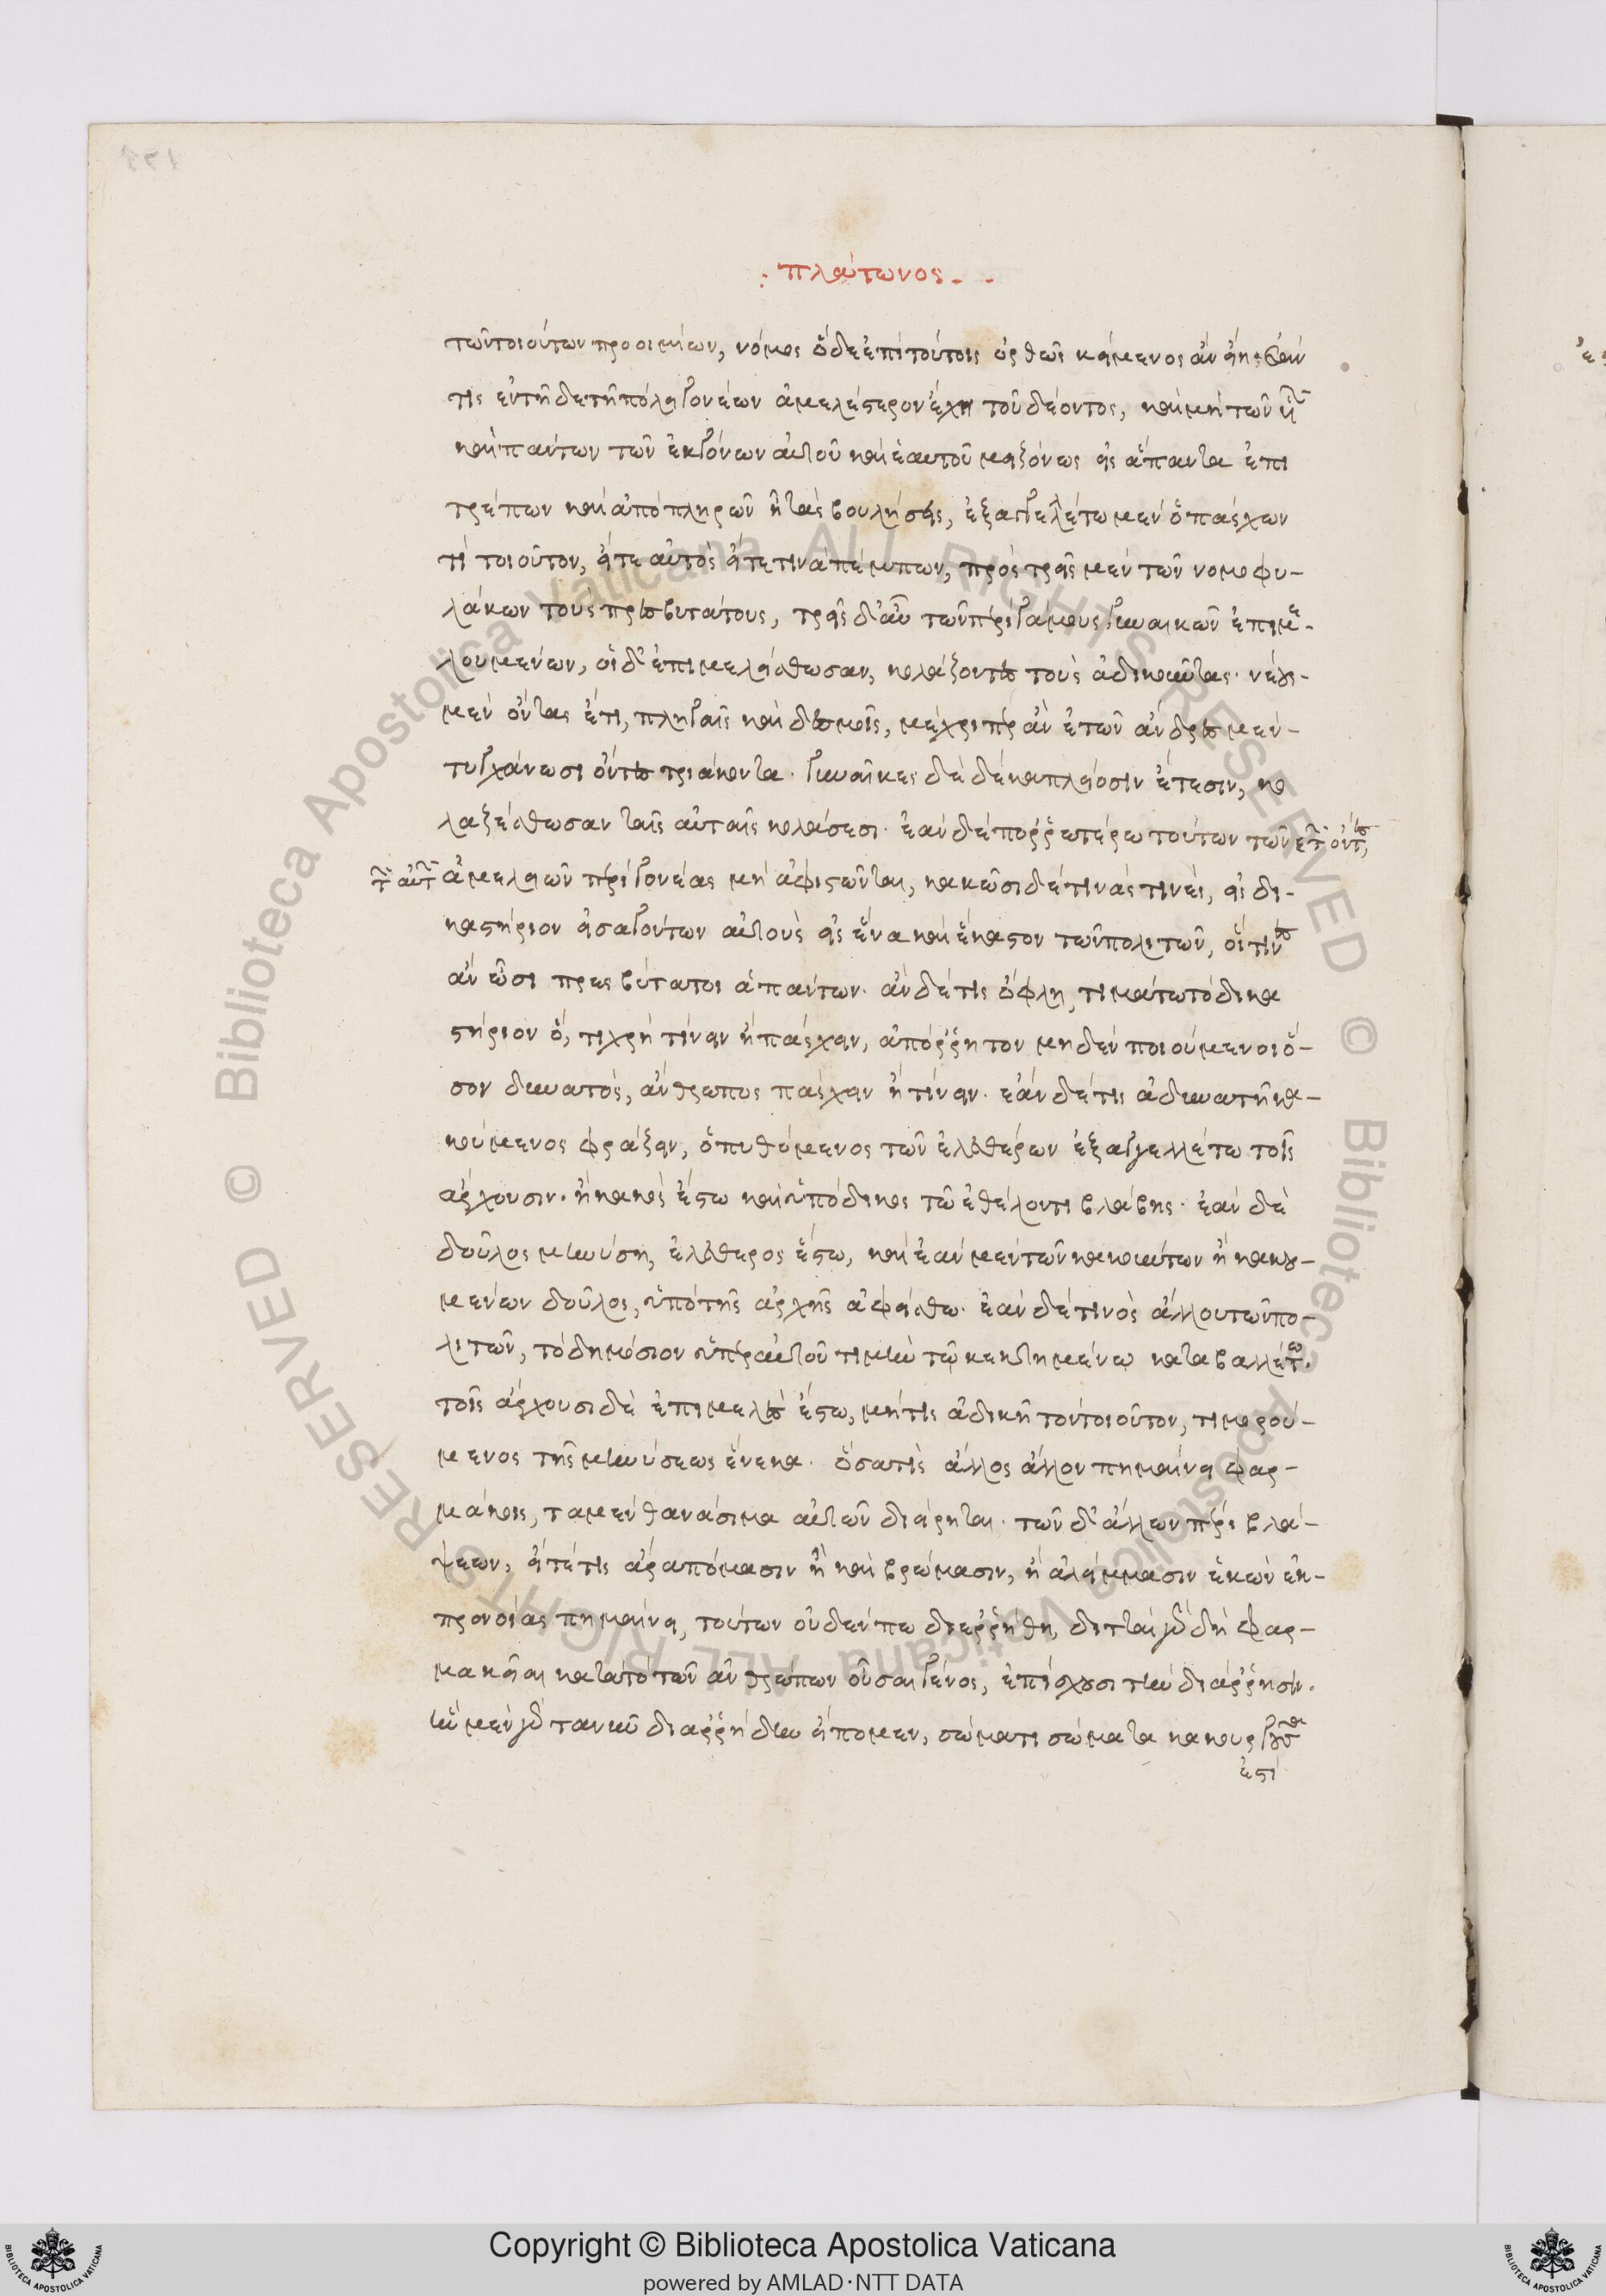 : πλάτωνος. .
τῶν τοιούτων προοιμίων, νόμος ὅδε ἐπὶ τούτοις ὀρθῶς κείμενος ἂν εἴη· ἐάν
τις ἐν τῇδε τῇ πόλει γονέων ἀμελέστερον ἔχῃ τοῦ δέοντος, καὶ μὴ τῶν
καὶ πάντων τῶν ἐκγόνων αὐτοῦ καὶ ἑαυτοῦ μειζόνως εἰς ἅπαντα ἐπι
τρέπων καὶ ἀποπληρῶν ἢ τὰς βουλήσεις, ἐξαγγελέτω μὲν ὁ πάσχων
τὶ τοιοῦτον, εἴτε αὐτὸς εἴτε τινὰ πέμπων, πρὸς τρεῖς μὲν τῶν νομοφυ-
λάκων τοὺς πρεσβυτάτους, τρεῖς δ' αὖ τῶν περὶ γάμους γυναικῶν ἐπιμε-
λουμένων, οἱ δ' ἐπιμελείσθωσαν, κολάζοντες τοὺς ἀδικοῦντας· νέους-
μὲν ὄντας ἔτι, πληγαῖς καὶ δεσμοῖς, μέχριπερ ἂν ἐτῶν ἄνδρες μὲν-
τυγχάνωσι ὄντες τριάκοντα· γυναῖκες δὲ δέκα πλείοσιν ἔτεσιν, κο
λαζέσθωσαν ταῖς αὐταῖς κολάσεσι· ἐὰν δὲ πορρωτέρω τούτων τῶν ἐτῶν ὄντες,
τῶν αὐτῶν ἀμελειῶν περὶ γονέας μὴ ἀφιστῶνται, κακῶσι δέ τινάς τινες, εἰς δι-
καστήριον εἰσαγόντων αὐτοὺς εἰς ἕνα καὶ ἕκαστον τῶν πολιτῶν, οἵτινες
ἂν ὦσι πρεσβύτατοι ἁπάντων· ἂν δέ τις ὄφλῃ, τιμάτω τὸ δικα
στήριον ὅ, τι χρὴ τίνειν ἢ πάσχειν, ἀπόρρητον μηδὲν ποιούμενοι ὅ-
σον δυνατὸς, ἄνθρωπος πάσχειν ἢ τίνειν· ἐὰν δέ τις ἀδυνατῇ κα-
κούμενος φράζειν, ὁ πυθόμενος τῶν ἐλευθέρων ἐξαγγελλέτω τοῖς
ἄρχουσιν· ἢ κακὸς ἔστω καὶ ὑπόδικος τῷ ἐθέλοντι βλάβης· ἐὰν δὲ
δοῦλος μηνύσῃ, ἐλεύθερος ἔστω, καὶ ἐὰν μὲν τῶν κακωσάντων ἢ κακου-
μένων δοῦλος, ὑπὸ τῆς ἀρχῆς ἀφείσθω· ἐὰν δέ τινος ἄλλου τῶν πο-
λιτῶν, τὸ δημόσιον ὑπὲρ αὐτοῦ τιμὴν τῷ κεκτημένῳ καταβαλλέτω.
τοῖς ἄρχουσι δὲ ἐπιμελὲς ἔστω, μή τις ἀδικῇ τὸν τοιοῦτον, τιμωρού-
μενος τῆς μηνύσεως ἕνεκα· ὅσα τις ἄλλος ἄλλον πημαίνει φαρ-
μάκοις, τὰ μὲν θανάσιμα αὐτῶν διείρηται· τῶν δ' ἄλλων περὶ βλά-
ψεων, εἴτέ τις ἄρα πόμασιν ἢ καὶ βρώμασιν, ἢ ἀλείμμασιν ἑκὼν ἐκ-
προνοίας πημαίνει, τούτων οὐδέν πω διερρήθη, διτταὶ γὰρ δὴ φαρ-
μακεῖαι κατὰ τὸ τῶν ἀνθρώπων οὖσαι γένος, ἐπίσχουσι τὴν διάρρησιν.
ἣν μὲν γὰρ τανῦν διαρρήδην εἴπομεν, σώμασι σώματα κακουργοῦσα
ἐστὶ